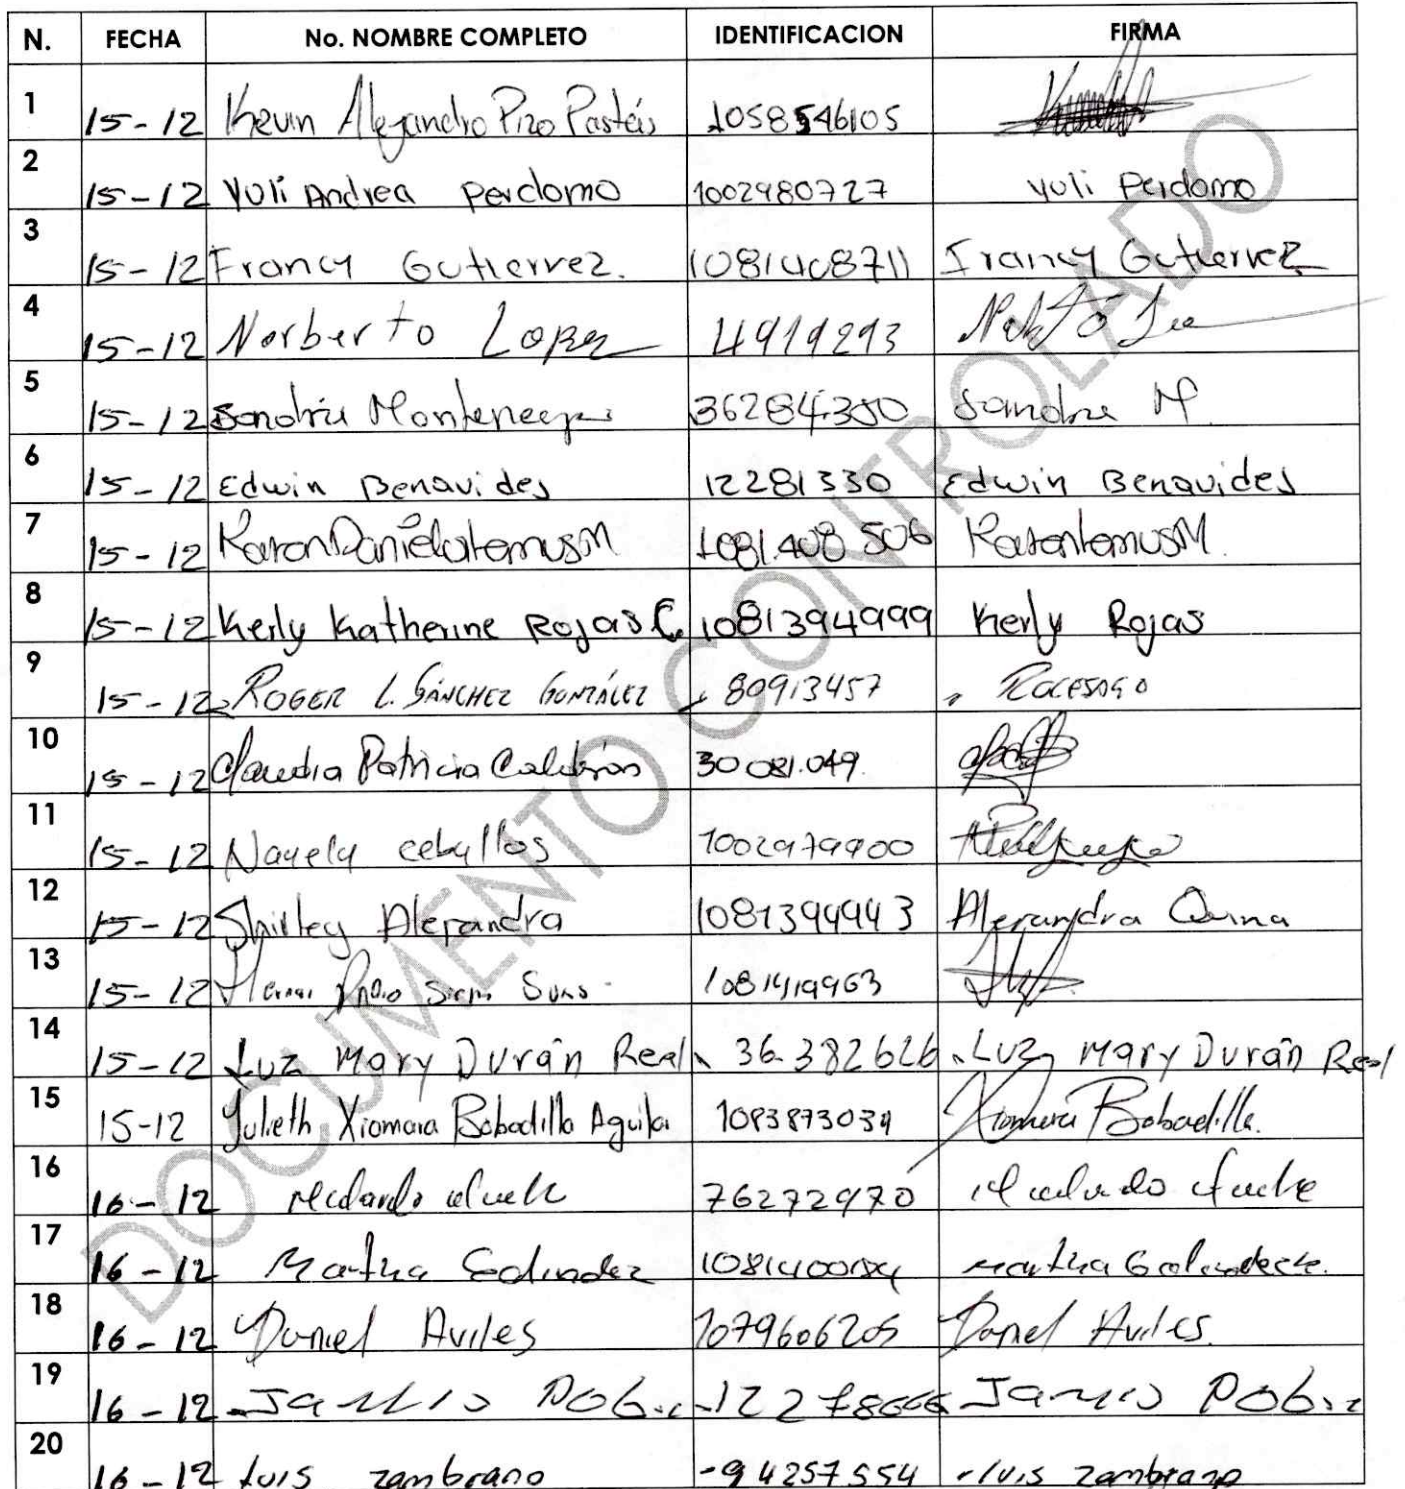 N. FECHA No. NOMBRE COMPLETO IDENTIFICACION FIRMA
1 15-12 Kevin Alejandro Pizo Pastás 1058546105
2 15-12 Yuli Andrea Perdomo 1002980727 Yuli Perdomo
3 15-12 Francy Gutierrez. 1081408711 Francy Gutierrez
4 15-12 Norberto Lopez 4919293
5 15-12 Sandra Montenegro 36284.350 Sandra M
6 15-12 Edwin Benavides 12281330 Edwin Benavides
7 15-12 Karon Daniela lemus M 1081.408 506 Karon lemus M.
8 15-12 Kerly Katherine Rojas C. 1081394999 Kerly Rojas
9 15-12 ROGER L. SÁNCHEZ GONZÁLEZ 80913457
10 15-12 Claudia Patricia Calderón 30081.049.
11 15-12 Nayely ceballos 1002979900
12 15-12 Shirley Alejandra 1081394943 Alejandra
13 15-12 1081419963
14 15-12 Luz Mary Durán Real 36.382626 Luz Mary Durán Real
15 15-12 Yulieth Xiomara Bobadilla Aguilar 1083873034 Xiomara Bobadilla.
16 16-12 76272970
17 16-12 Martha Martha
18 16-12 Daniel Aviles 1079606205 Daniel Aviles.
19 16-12
20 16-12 Luis zambrano -94257554 Luis zambrano
DOCUMENTO CONTROLADO